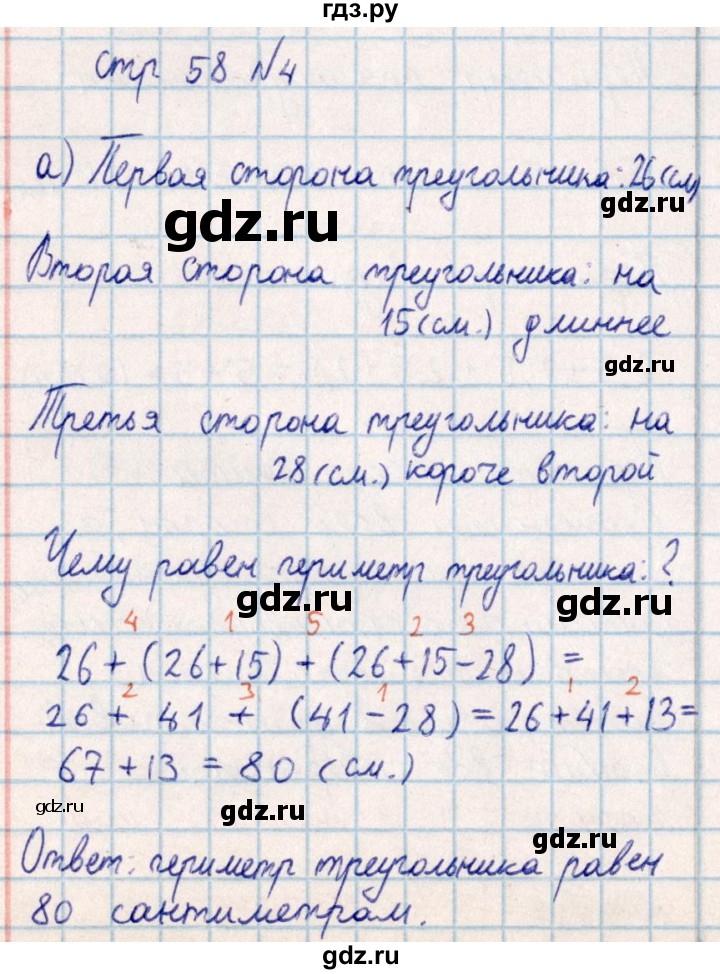 гдз.ру
стр 58 №4
а) Первая сторона треугольника: 26 (см)
gdz.ru
gdz.ru
Вторая сторона треугольника: на
15 (см.) длиннее
gdz.ru
Третья сторона треугольника: на
28 (см.) короче второй
Чему равен периметр треугольника: ?
gdz.ru
gdz.ru
4 1 5 2 3
26 + (26 + 15) + (26 + 15 - 28) =
2 3 1 1 2
26 + 41 + (41 - 28) = 26 + 41 + 13 =
67 + 13 = 80 (см.)
gdz.ru
gdz.ru
gdz.ru
Ответ: периметр треугольника равен
80 сантиметрам.
gdz.ru